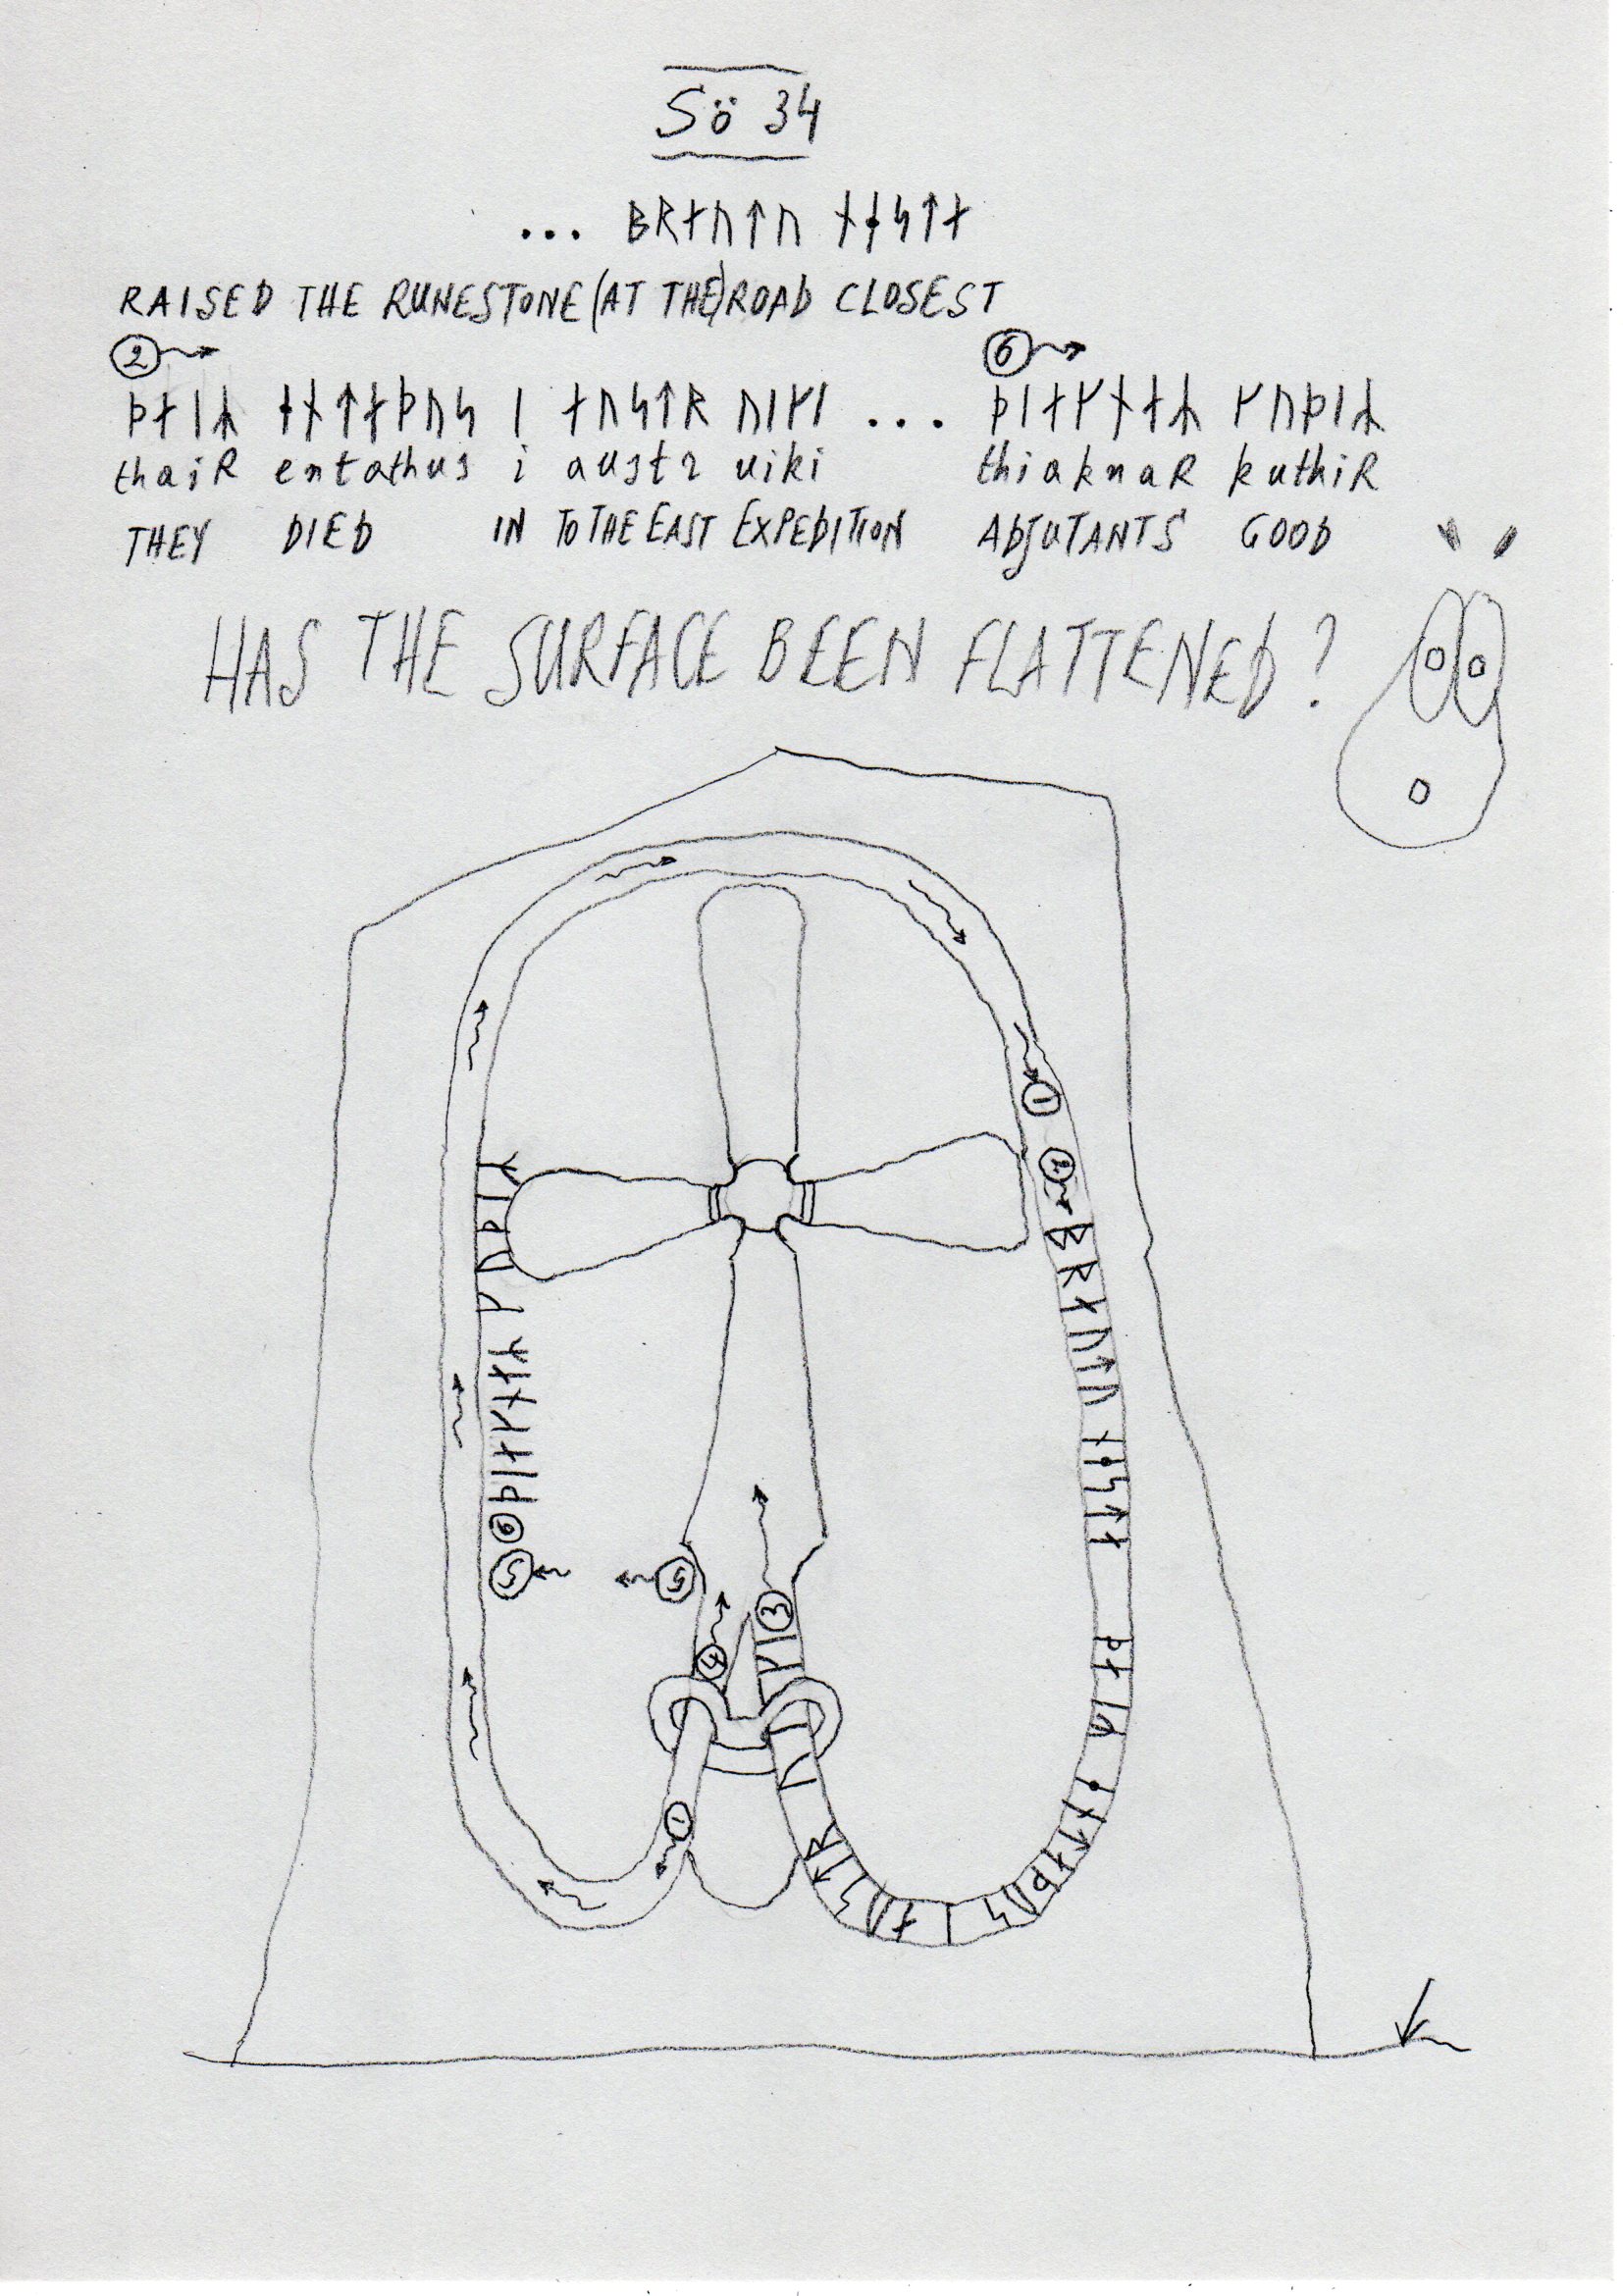 Sö 34
... ᛒᚱᛅᚢᛏᚢ ᚾᛂᛋᛏᛅ
RAISED THE RUNESTONE (AT THE) ROAD CLOSEST
② ⑥
ᚦᛅᛁᛦ ᛂᚾᛏᛅᚦᚢᛋ ᛁ ᛅᚢᛋᛏᚱ ᚢᛁᚴᛁ ... ᚦᛁᛅᚴᚾᛅᛦ ᚴᚢᚦᛁᛦ
thaiR entathus i austr uiki thiaknaR kuthiR
THEY DIED IN TO THE EAST EXPEDITION ADJUTANTS GOOD
HAS THE SURFACE BEEN FLATTENED?
①
①
② ᛒᚱᛅᚢᛏᚢ ᚾᛂᛋᛏᛅ ᚦᛅᛁᛦ ᛂᚾᛏᛅᚦᚢᛋ ᛁ ᛅᚢᛋᛏᚱ ᚢᛁᚴᛁ ③
④
⑤
⑤
⑥ ᚦᛁᛅᚴᚾᛅᛦ ᚴᚢᚦᛁᛦ